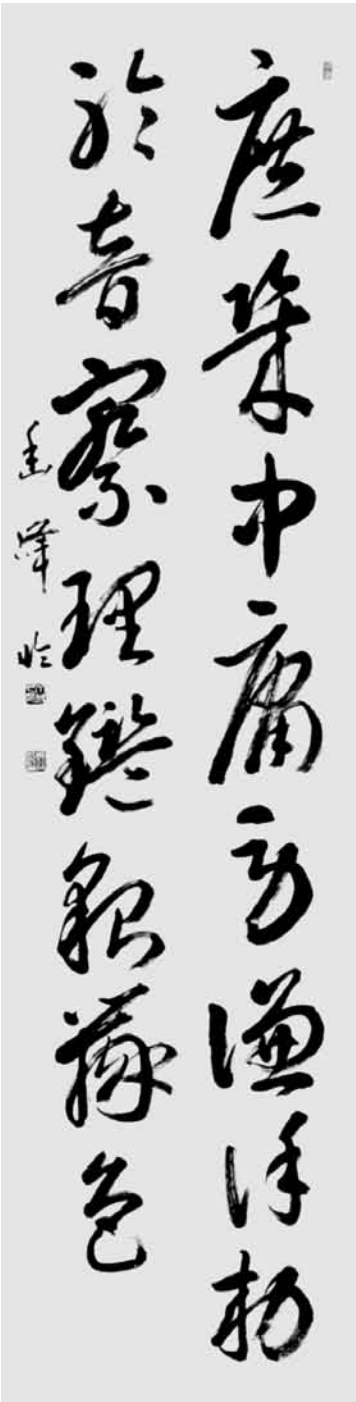 庶幾中庸勞謙謹勅
聆音察理鑑貌辨色
峰臨